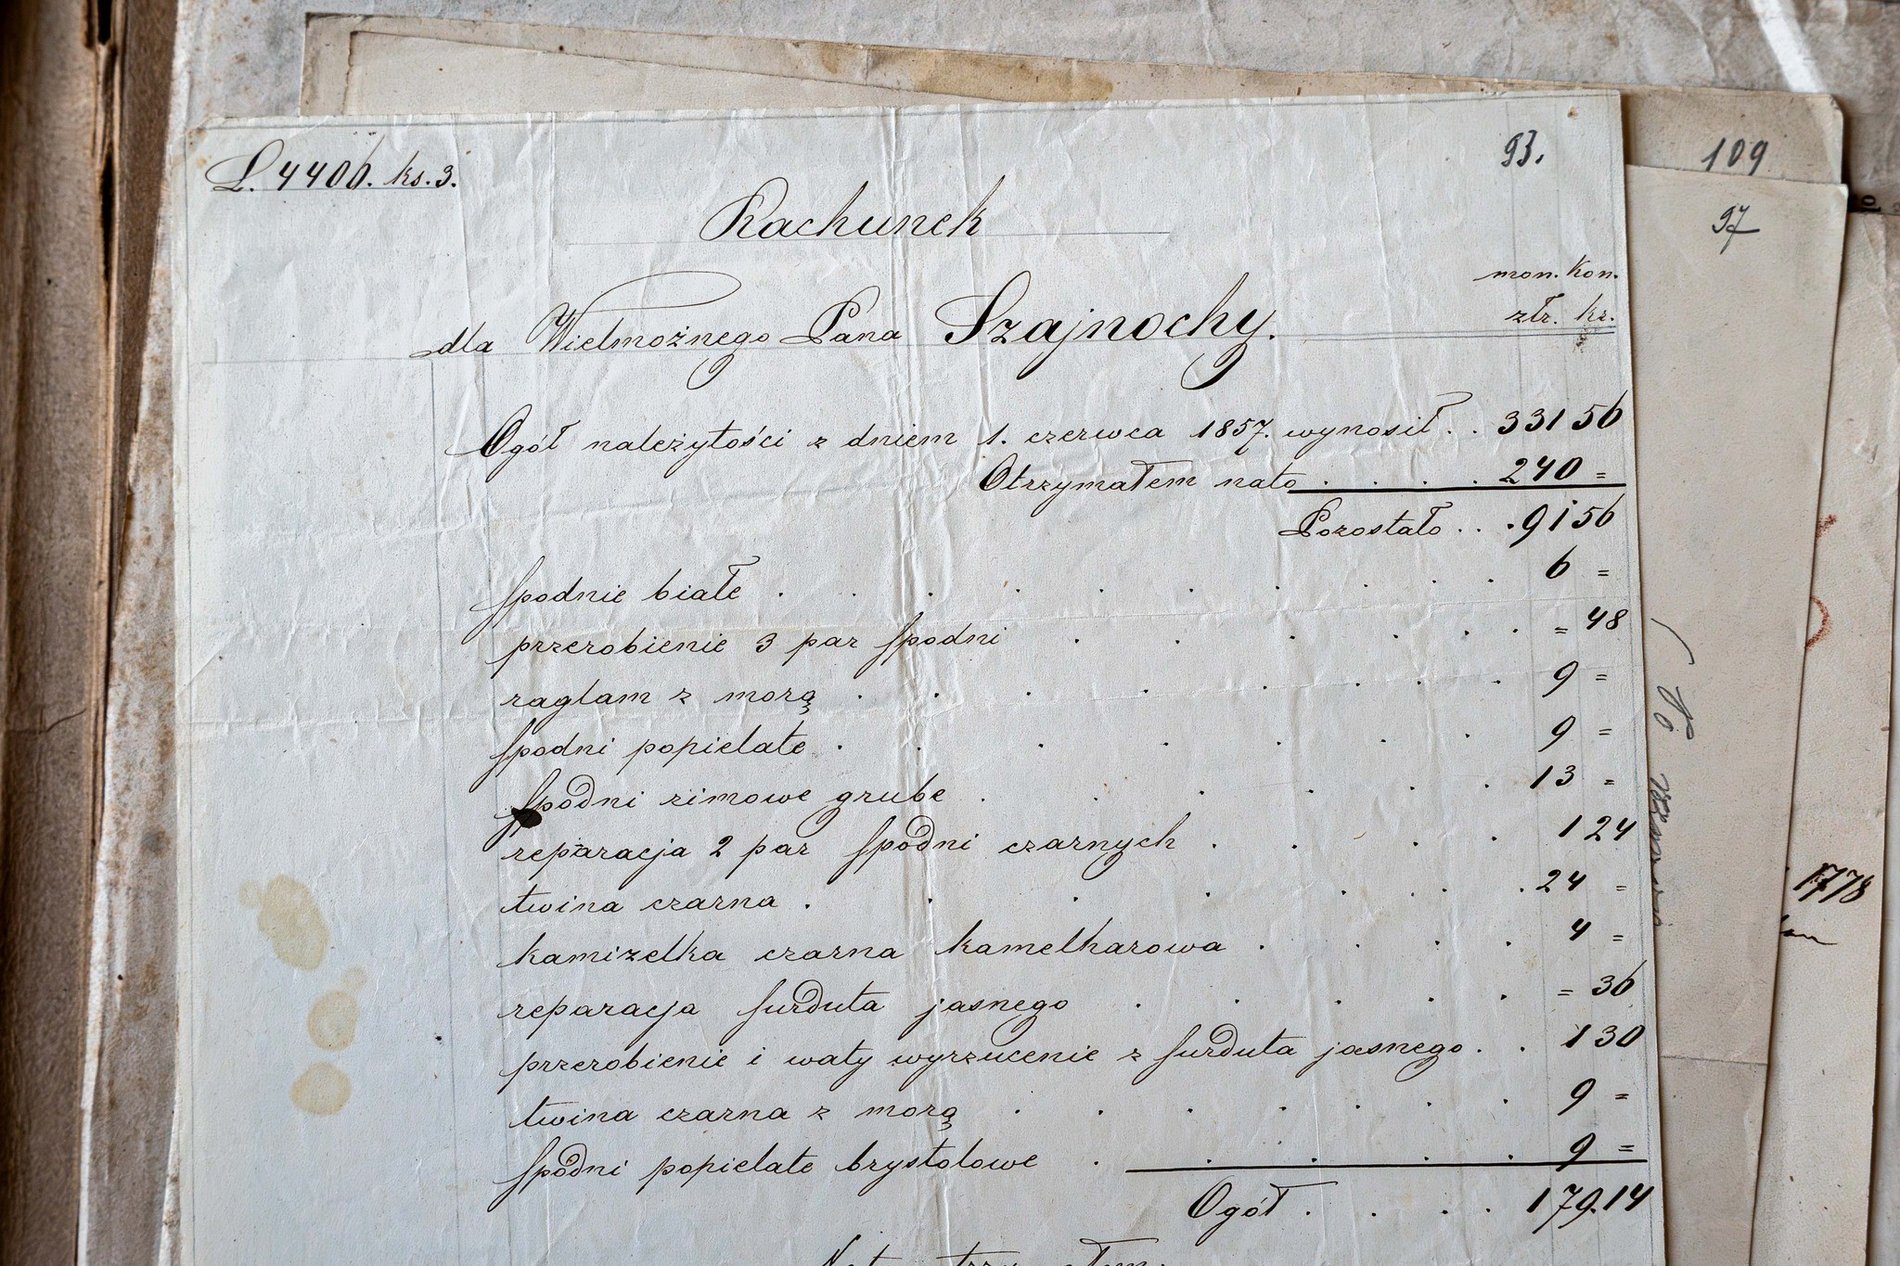 L. 4406. ks. 3.
93.
109
97
Rachunek
mon. Kon.
dla Wielmożnego Pana Szajnochy.
złr. kr.
Ogół należytości z dniem 1. czerwca 1857. wynosił . . 331 56
Otrzymałem nato . . . . 240 =
Pozostało . . . 91 56
spodnie białe . . . . . . . . . 6 =
przerobienie 3 par spodni . . . . . . = 48
raglam z morą . . . . . . . . 9 =
spodni popielate . . . . . . 9 =
spodni zimowe grube . . . . . . 13 =
reparacja 2 par spodni czarnych . . . . 1 24
twina czarna . . . . . . . . 24 =
kamizelka czarna kamelharowa . . . . 4 =
reparacja surduta jasnego . . . . . = 36
przerobienie i waty wyrzucenie z surduta jasnego . . 1 30
twina czarna z morą . . . . . . . 9 =
spodni popielate brystolowe . . . . . 9 =
Ogół . . . . 179.14
1778